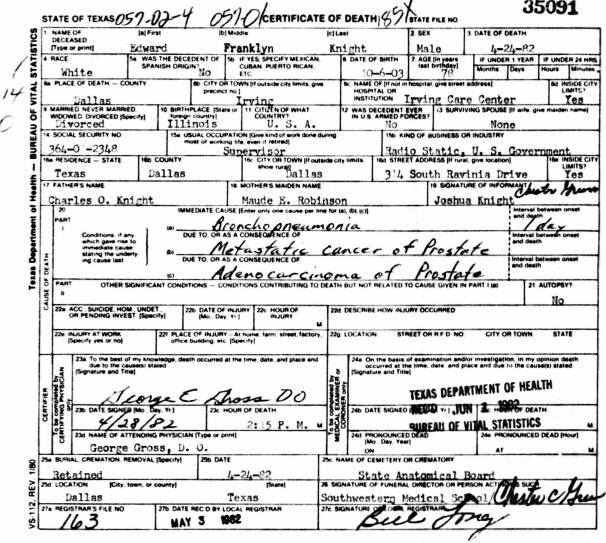 35091
STATE OF TEXAS 057-02-4 057-01 CERTIFICATE OF DEATH 185X STATE FILE NO
1 NAME OF DECEASED [Type or print] (a) First (b) Middle (c) Last 2 SEX 3 DATE OF DEATH
Edward Franklyn Knight Male 4-24-82
4 RACE 5a WAS THE DECENT OF SPANISH ORIGIN? 5b IF YES, SPECIFY MEXICAN, CUBAN, PUERTO RICAN, ETC. 6 DATE OF BIRTH 7 AGE (In years last birthday) IF UNDER 1 YEAR IF UNDER 24 HRS
Months Days Hours Minutes
White No 10-6-03 78
8a PLACE OF DEATH — COUNTY 8b CITY OR TOWN (If outside city limits, give precinct no) 8c NAME OF (If not in hospital, give street address) HOSPITAL OR INSTITUTION 8d INSIDE CITY LIMITS?
Dallas Irving Irving Care Center Yes
9 MARRIED NEVER MARRIED, WIDOWED DIVORCED (Specify) 10 BIRTHPLACE (State or foreign country) 11 CITIZEN OF WHAT COUNTRY? 12 WAS DECEDENT EVER IN U.S. ARMED FORCES? 13 SURVIVING SPOUSE (If wife, give maiden name)
Divorced Illinois U. S. A. No None
14 SOCIAL SECURITY NO 15a USUAL OCCUPATION (Give kind of work done during most of working life, even if retired) 15b KIND OF BUSINESS OR INDUSTRY
364-0 -2348 Supervisor Radio Static, U. S. Government
16a RESIDENCE — STATE 16b COUNTY 16c CITY OR TOWN (If outside city limits, show rural) 16d STREET ADDRESS (If rural, give location) 16e INSIDE CITY LIMITS?
Texas Dallas Dallas 314 South Ravinia Drive Yes
17 FATHER'S NAME 18 MOTHER'S MAIDEN NAME 19 SIGNATURE OF INFORMANT
Charles O. Knight Maude E. Robinson Joshua Knight
20 IMMEDIATE CAUSE [Enter only one cause per line for (a), (b), (c)] Interval between onset and death
PART I (a) Bronchopneumonia 1 day
Conditions, if any, which gave rise to immediate cause stating the underlying cause last
DUE TO, OR AS A CONSEQUENCE OF Interval between onset and death
(b) Metastatic cancer of Prostate
DUE TO, OR AS A CONSEQUENCE OF Interval between onset and death
(c) Adenocarcinoma of Prostate
PART II OTHER SIGNIFICANT CONDITIONS — CONDITIONS CONTRIBUTING TO DEATH BUT NOT RELATED TO CAUSE GIVEN IN PART I (a) 21 AUTOPSY?
No
22a ACC, SUICIDE, HOM, UNDET, OR PENDING INVEST (Specify) 22b DATE OF INJURY (Mo, Day, Yr) 22c HOUR OF INJURY M 22d DESCRIBE HOW INJURY OCCURRED
22e INJURY AT WORK (Specify yes or no) 22f PLACE OF INJURY — At home, farm, street, factory, office building, etc (Specify) 22g LOCATION STREET OR R F D NO CITY OR TOWN STATE
23a To the best of my knowledge, death occurred at the time, date, and place and due to the cause(s) stated (Signature and Title)
24a On the basis of examination and/or investigation, in my opinion death occurred at the time, date, and place and due to the cause(s) stated (Signature and Title)
George E Gross DO
TEXAS DEPARTMENT OF HEALTH
23b DATE SIGNED (Mo, Day, Yr) 23c HOUR OF DEATH 24b DATE SIGNED
REC'D JUN 1 1982
4/28/82 2:15 P. M. M
BUREAU OF VITAL STATISTICS
23d NAME OF ATTENDING PHYSICIAN (Type or print) 24d PRONOUNCED DEAD (Mo, Day, Year) 24e PRONOUNCED DEAD (Hour)
George Gross, D. O. ON AT M
25a BURIAL, CREMATION, REMOVAL (Specify) 25b DATE 25c NAME OF CEMETERY OR CREMATORY
Retained 4-24-82 State Anatomical Board
25d LOCATION (City, town, or county) (State) 26 SIGNATURE OF FUNERAL DIRECTOR OR PERSON ACTING AS SUCH
Dallas Texas Southwestern Medical School/
27a REGISTRAR'S FILE NO 27b DATE REC'D BY LOCAL REGISTRAR 27c SIGNATURE OF LOCAL REGISTRAR
163 MAY 3 1982 Bill Long
Texas Department of Health — BUREAU OF VITAL STATISTICS
CAUSE OF DEATH
CERTIFIER
To be completed by CERTIFYING PHYSICIAN only
To be completed by MEDICAL EXAMINER or CORONER only
VS-112, REV 1/80
14
0